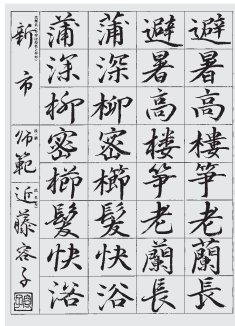 避暑高楼箏老蘭長
避暑高樓箏老蘭長
蒲深柳密櫛髪快浴
蒲深柳密櫛髪快浴
新市
師範
近藤容子